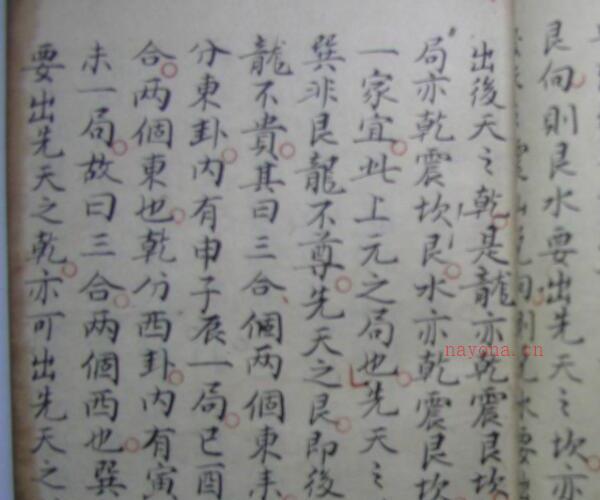 艮向則艮水要出先天之坎亦
出後天之乾是龍亦乾震艮坎
局亦乾震坎艮水亦乾震艮坎
一家宜此上元之局也先天之
巽非艮龍不尊先天之艮即後
龍不貴其曰三合個兩個東耒
分東卦内有申子辰一局巳酉
合兩個東也乾分西卦内有寅
未一局故曰三合兩個西也巽
要出先天之乾亦可出先天之
nayona.cn